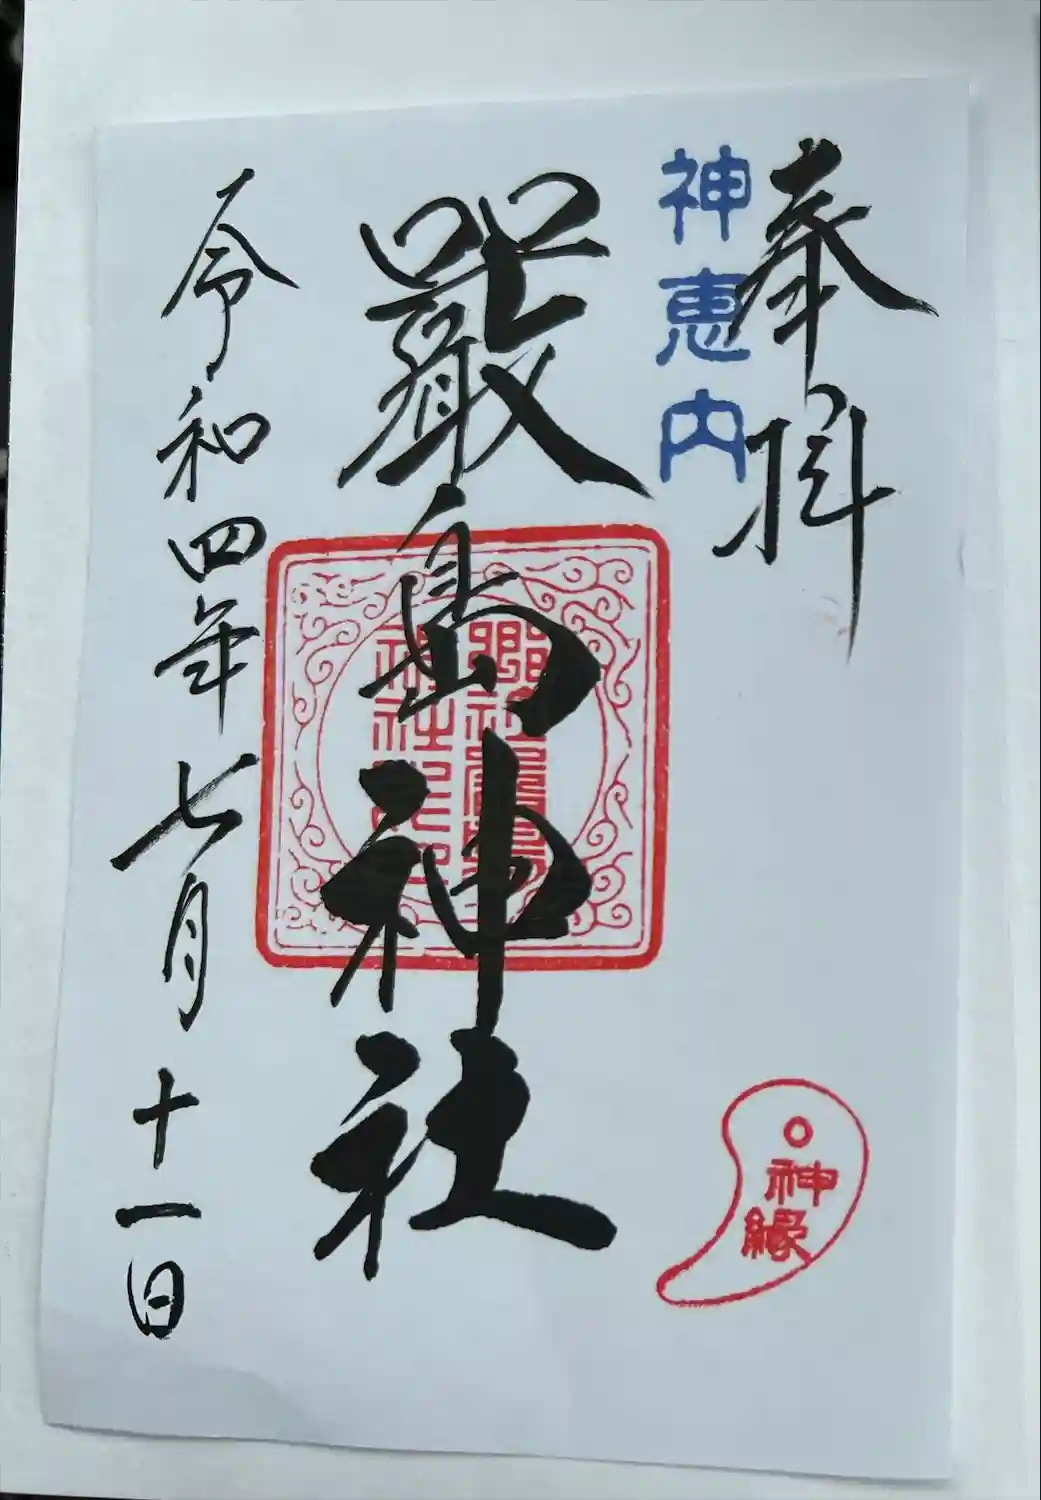 奉拝
神恵内
嚴島神社
郷社嚴島
神社之印
令和四年七月十一日
神縁